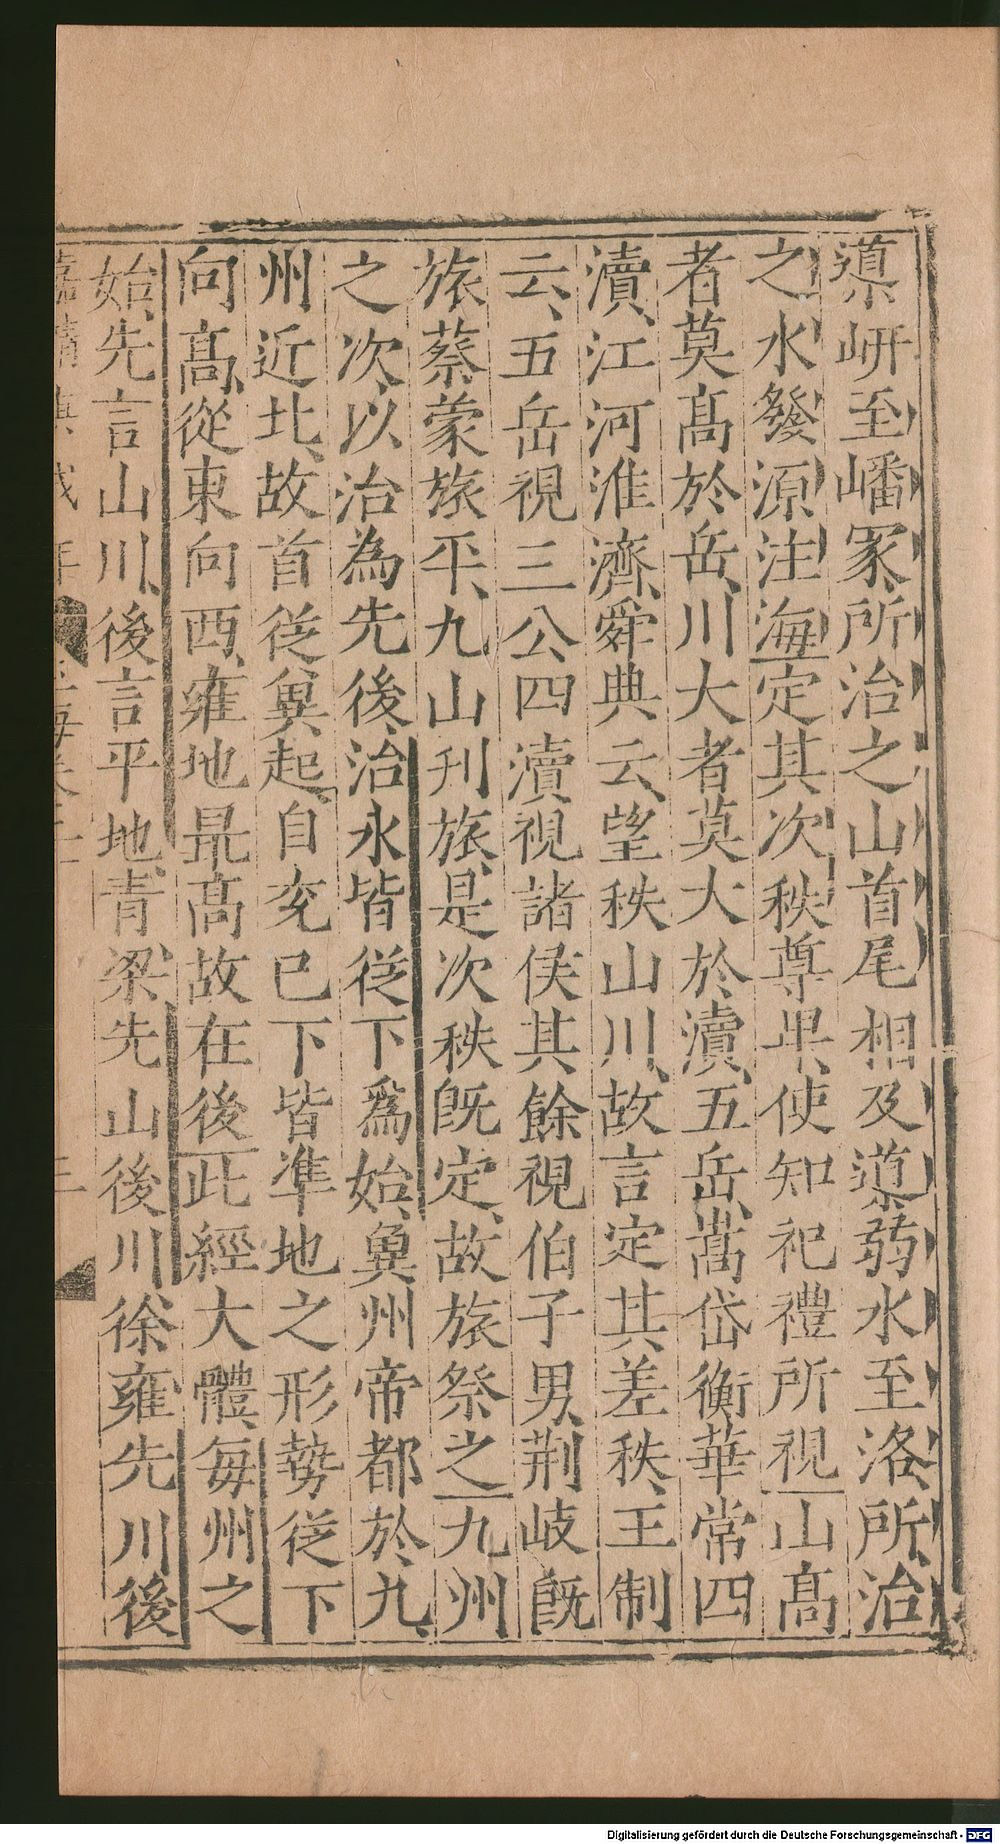 導岍至嶓冢、所治之山首尾相及導弱水至洛、所治
之水發源注海定其次秩尊卑、使知祀禮所視山髙
者莫髙於岳、川大者莫大於瀆、五岳、嵩岱衡華常四
瀆、江河淮濟、舜典云、望秩山川、故言定其差秩、王制
云、五岳視三公、四瀆視諸侯其餘視伯子男、荆岐既
旅、蔡蒙旅平、九山刋旅、是次秩既定、故旅祭之九州
之次、以治為先後、治水皆従下爲始、兾州帝都於九
州近北、故首従兾起、自兖已下皆準地之形勢従下
向髙、從東向西、雍地最髙故在後此經大體、毎州之
始、先言山川、後言平地、青梁先山後川、徐雍先川後
Digitalisierung gefördert durch die Deutsche Forschungsgemeinschaft - DFG